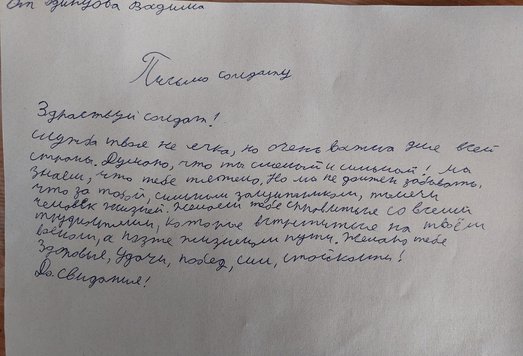 От Одинцова Вадима
Письмо солдату
Здраствуй солдат!
служба твоя не легка, но очень важна для всей
страны. Думаю, что ты смелый и сильный! Мы
знаем, что тебе тяжело. Но ты не должен забывать,
что за тобой, сильным защитником, тысячи
человек жизней. Желаем тебе справиться со всеми
трудностями, которые встретиться на твоём
военом, а позже жизненом пути. Желаю тебе
Здоровья, удачи, побед, сил, стойкости!
До Свидания!